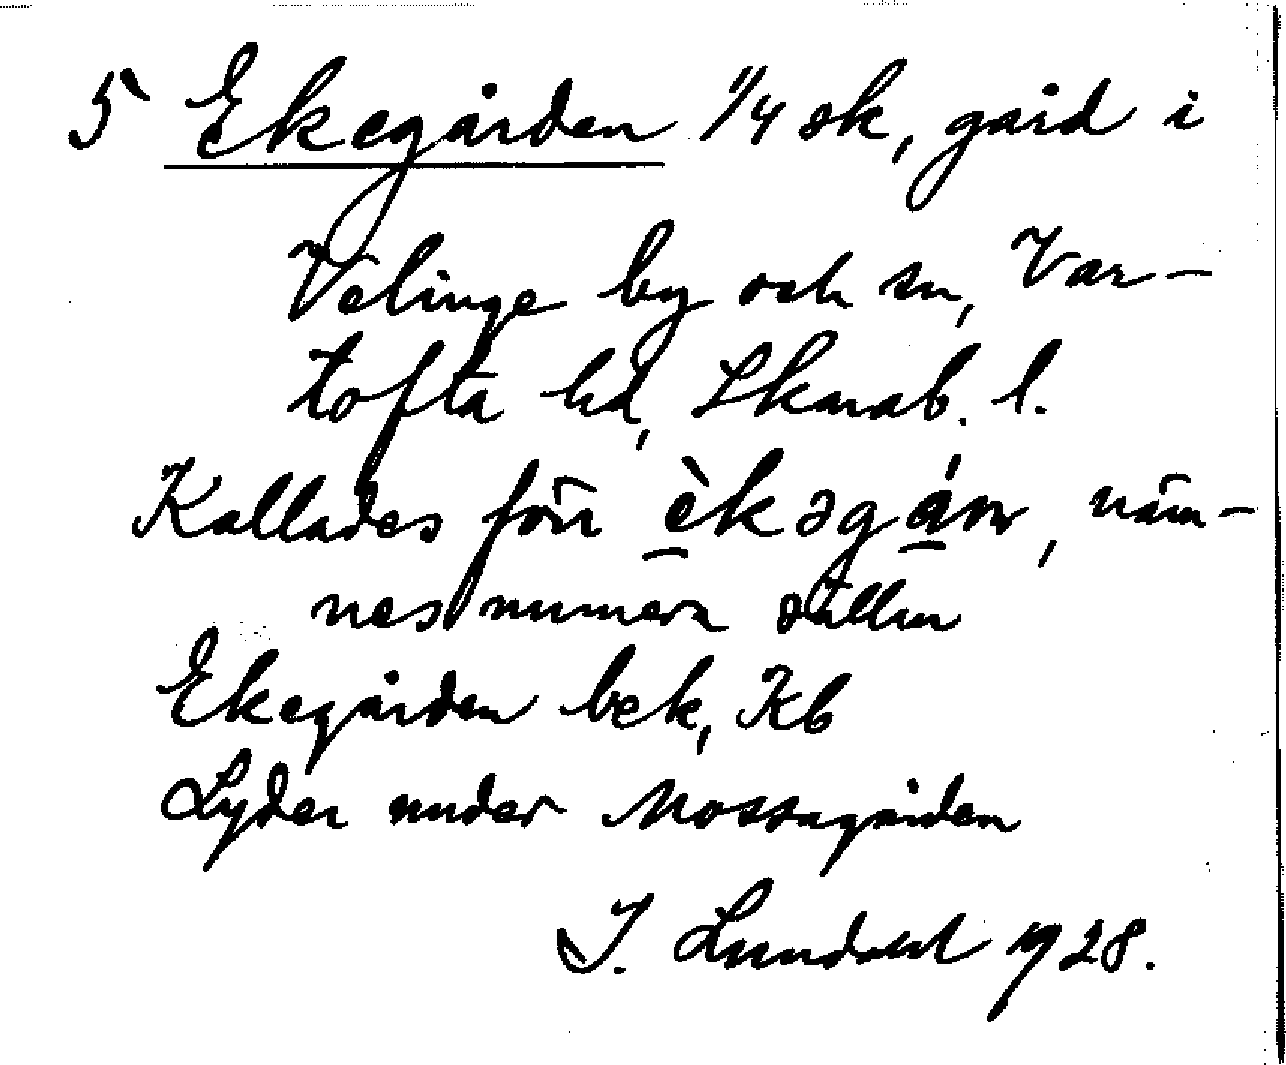 5 Ekegården 1/4 sk, gård i
Velinge by och sn, Var-
tofta hd, Skarab. l.
Kallades förr
èkəgán, näm-
nes numera sällan
Ekegården bek, Kb
Lyder under Mossagården
J. Lundahl 1928.